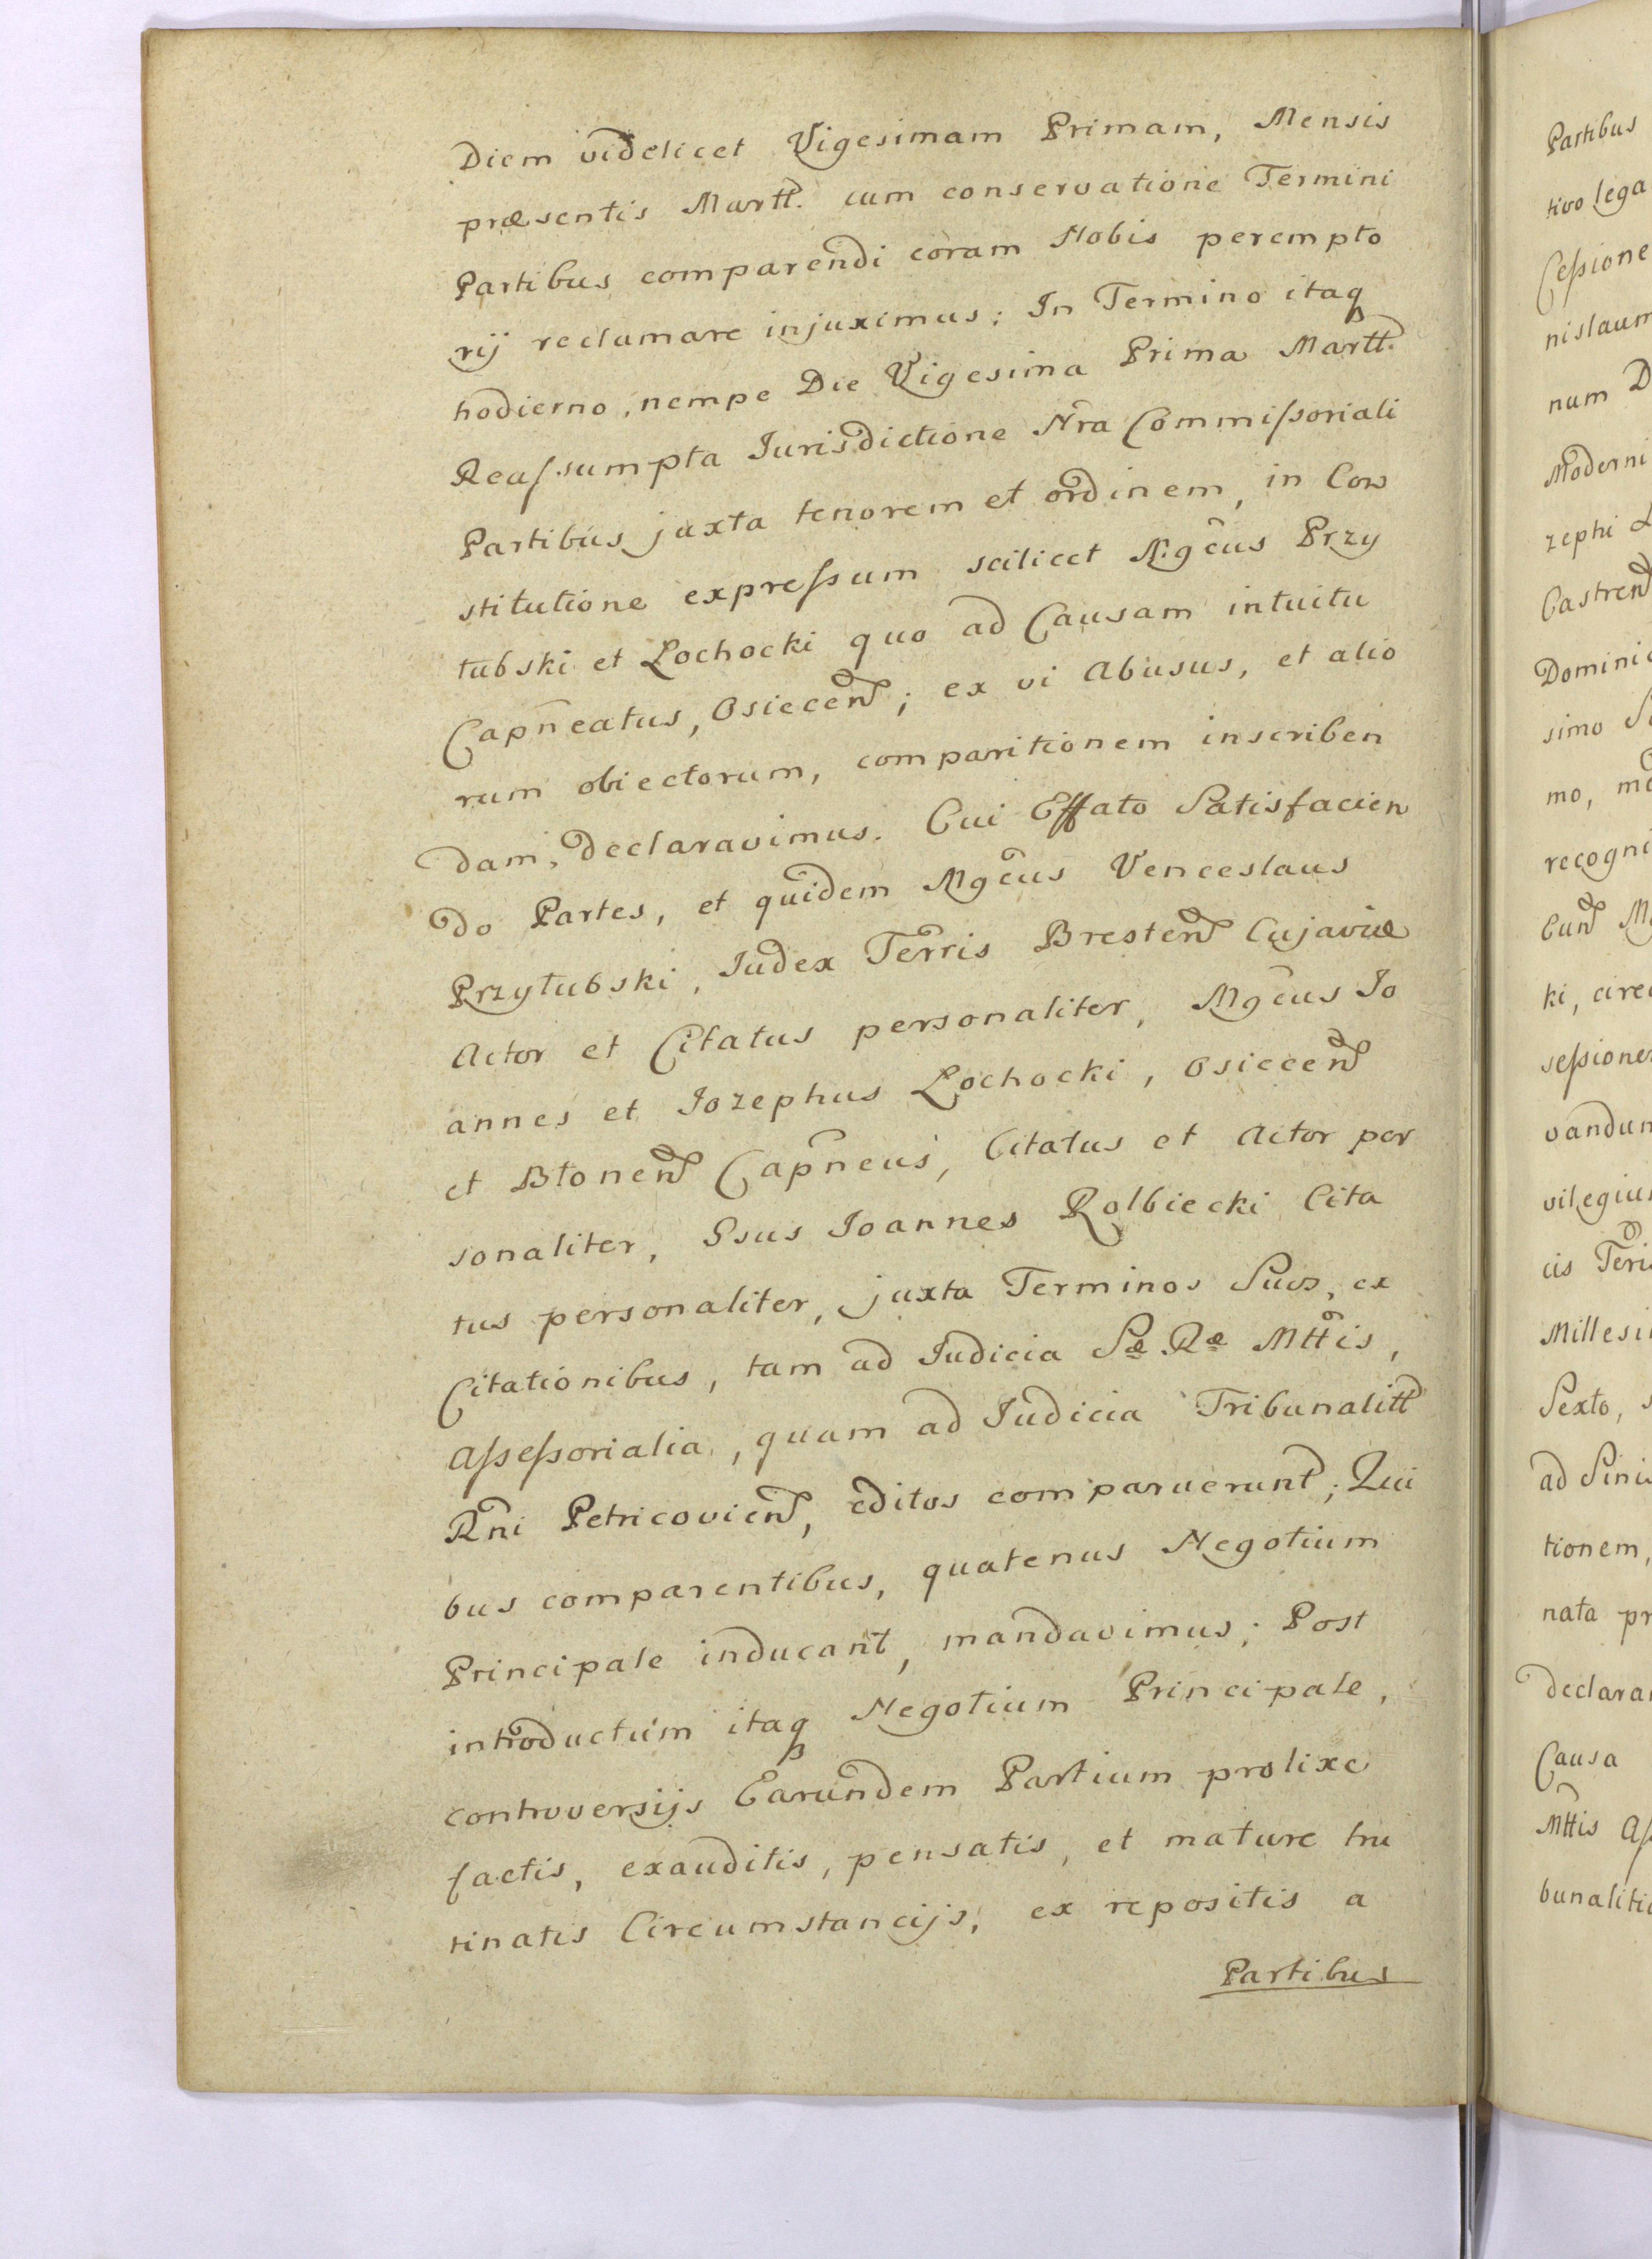 Diem videlicet Vigesimam Primam, Mensis
præsentis Martt. cum conservatione Termini
Partibus comparendi coram Nobis perempto
rij reclamare injuximus; In Termino itaq
hodierno, nempe Die Vigesima Prima Martt.
Reassumpta Jurisdictione Nra Commissoriali
Partibus juxta tenorem et ordinem, in Con
stitutione expressum scilicet Mgcus Przy
łubski et Łochocki quo ad Causam intuitu
Capneatus, Osiecen; ex vi Abusus, et alio
rum obiectorum, comparitionem inscriben
dam, declaravimus. Cui Effato Satisfacien
do Partes, et quidem Mgcus Venceslaus
Przyłubski, Judex Terris Bresten Cujaviæ
Actor et Citatus personaliter, Mgcus Jo
annes et Jozephus Łochocki, Osiecen
et Błonen Capneus, Citatus et Actor per
sonaliter, Gsus Joannes Kolbiecki Cita
tus personaliter, juxta Terminos Suos, ex
Citationibus, tam ad Judicia Sæ Ræ Mttis,
Assessorialia, quam ad Judicia Tribunalitt
Rni Petricovien, editos comparuerunt; Qui
bus comparentibus, quatenus Negotium
Principale inducant, mandavimus; Post
introductum itaq Negotium Principale,
controversijs Earundem Partium prolixe
factis, exauditis, pensatis, et mature tru
tinatis Circumstancijs, ex repositis a
Partibus
Partibus
tivo lega
Cessione
nislaum
num D
Moderni
zephi
Castren
Dominic
simo
mo,
recogni
Cun
ki, circ
sessione
vandum
vilegiu
cis Teris
Millesi
Sexto,
ad Sinis
tionem,
nata pr
declara
Causa
Mttis As
bunaliti